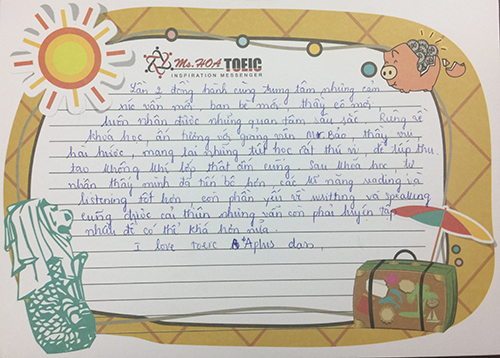 Ms.HOA TOEIC
INSPIRATION MESSENGER
Lần 2 đồng hành cùng trung tâm, nhưng cảm
xúc vẫn mới, bạn bè mới, thầy cô mới,
luôn nhận được những quan tâm sâu sắc. Riêng về
khoá học, ấn tượng với giảng viên Mr. Bảo, thầy vui,
hài hước, mang lại những tiết học rất thú vị, dễ tiếp thu.
tạo không khí lớp thật ấm cúng. Sau khoá học, tự
nhận thấy mình đã tiến bộ hơn các kĩ năng reading và
listening tốt hơn, còn phần yếu về writting và speaking
cũng được cải thiện nhưng vẫn còn phải luyện tập
nhiều để có thể khá hơn nữa.
I love toeic Aplus dan.